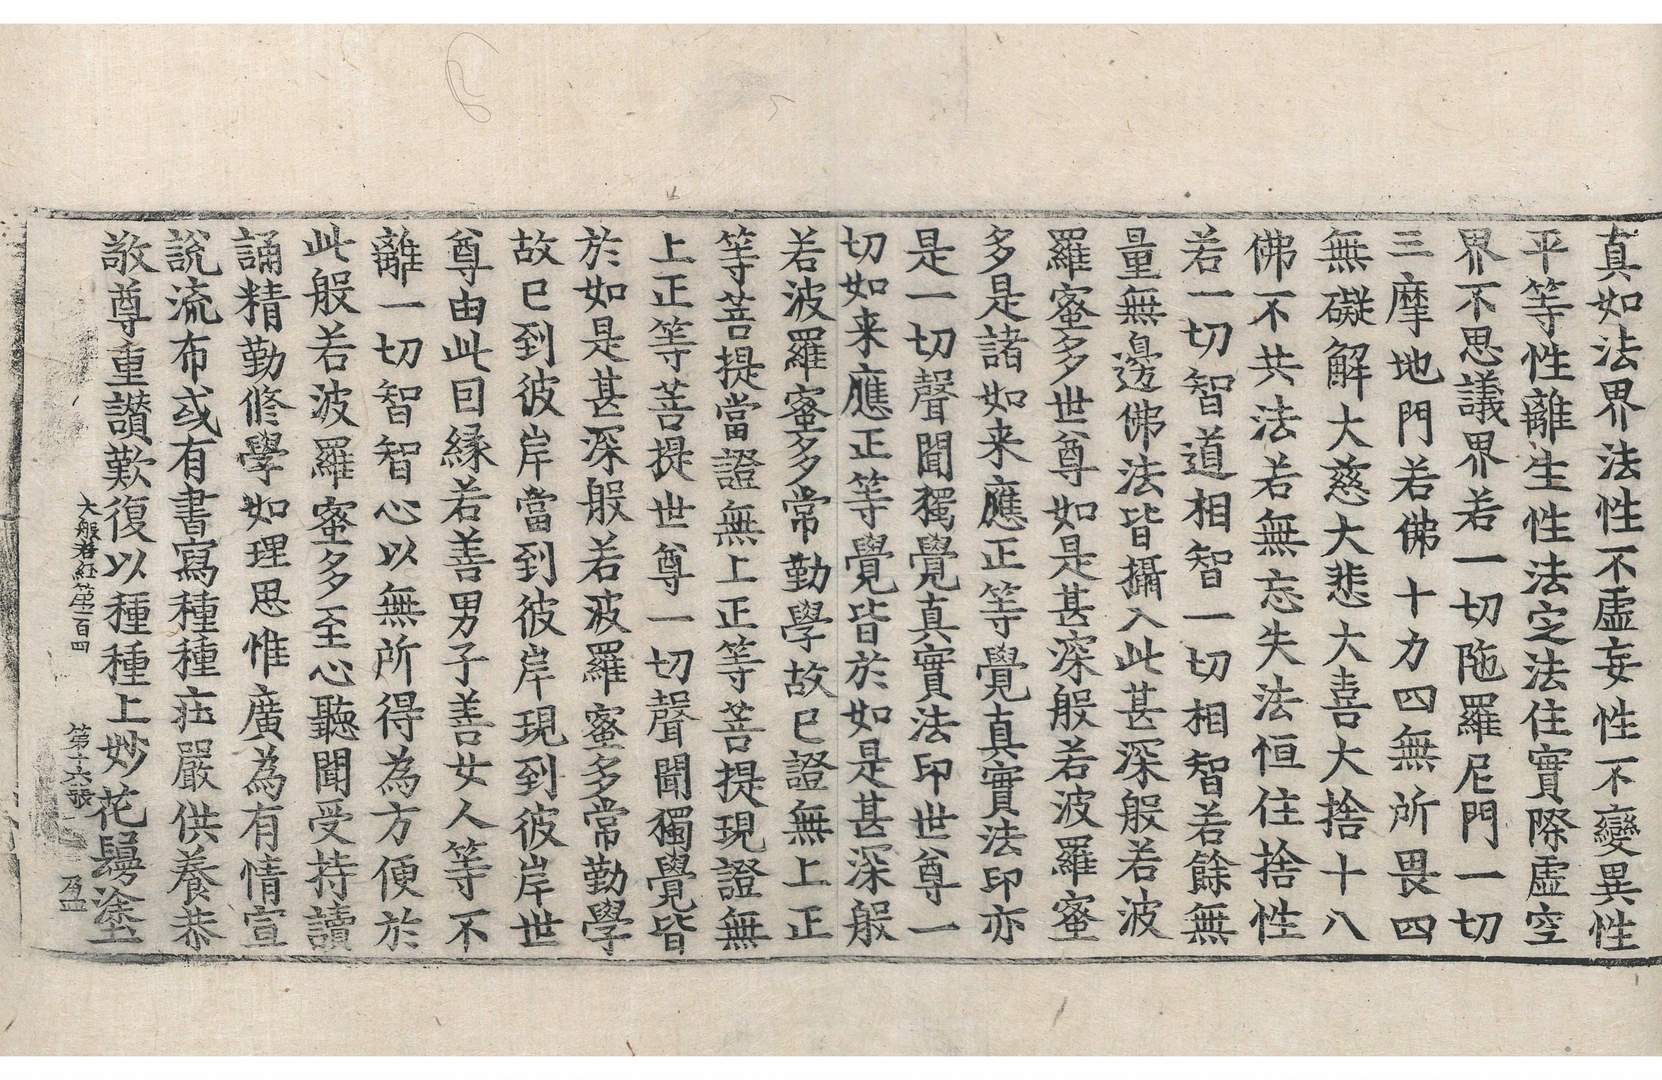 真如法界法性不虛妄性不變異性
平等性離生性法定法住實際虛空
界不思議界若一切陁羅尼門一切
三摩地門若佛十力四無所畏四
無礙解大慈大悲大喜大捨十八
佛不共法若無忘失法恒住捨性
若一切智道相智一切相智若餘無
量無邊佛法皆攝入此甚深般若波
羅蜜多世尊如是甚深般若波羅蜜
多是諸如来應正等覺真實法印亦
是一切聲聞獨覺真實法印世尊一
切如来應正等覺皆於如是甚深般
若波羅蜜多常勤學故已證無上正
等菩提當證無上正等菩提現證無
上正等菩提世尊一切聲聞獨覺皆
於如是甚深般若波羅蜜多常勤學
故已到彼岸當到彼岸現到彼岸世
尊由此因緣若善男子善女人等不
離一切智智心以無所得為方便於
此般若波羅蜜多至心聽聞受持讀
誦精勤修學如理思惟廣為有情宣
說流布或有書寫種種莊嚴供養恭
敬尊重讃歎復以種種上妙花鬘塗
大般若經第一百四　第十六張　盈